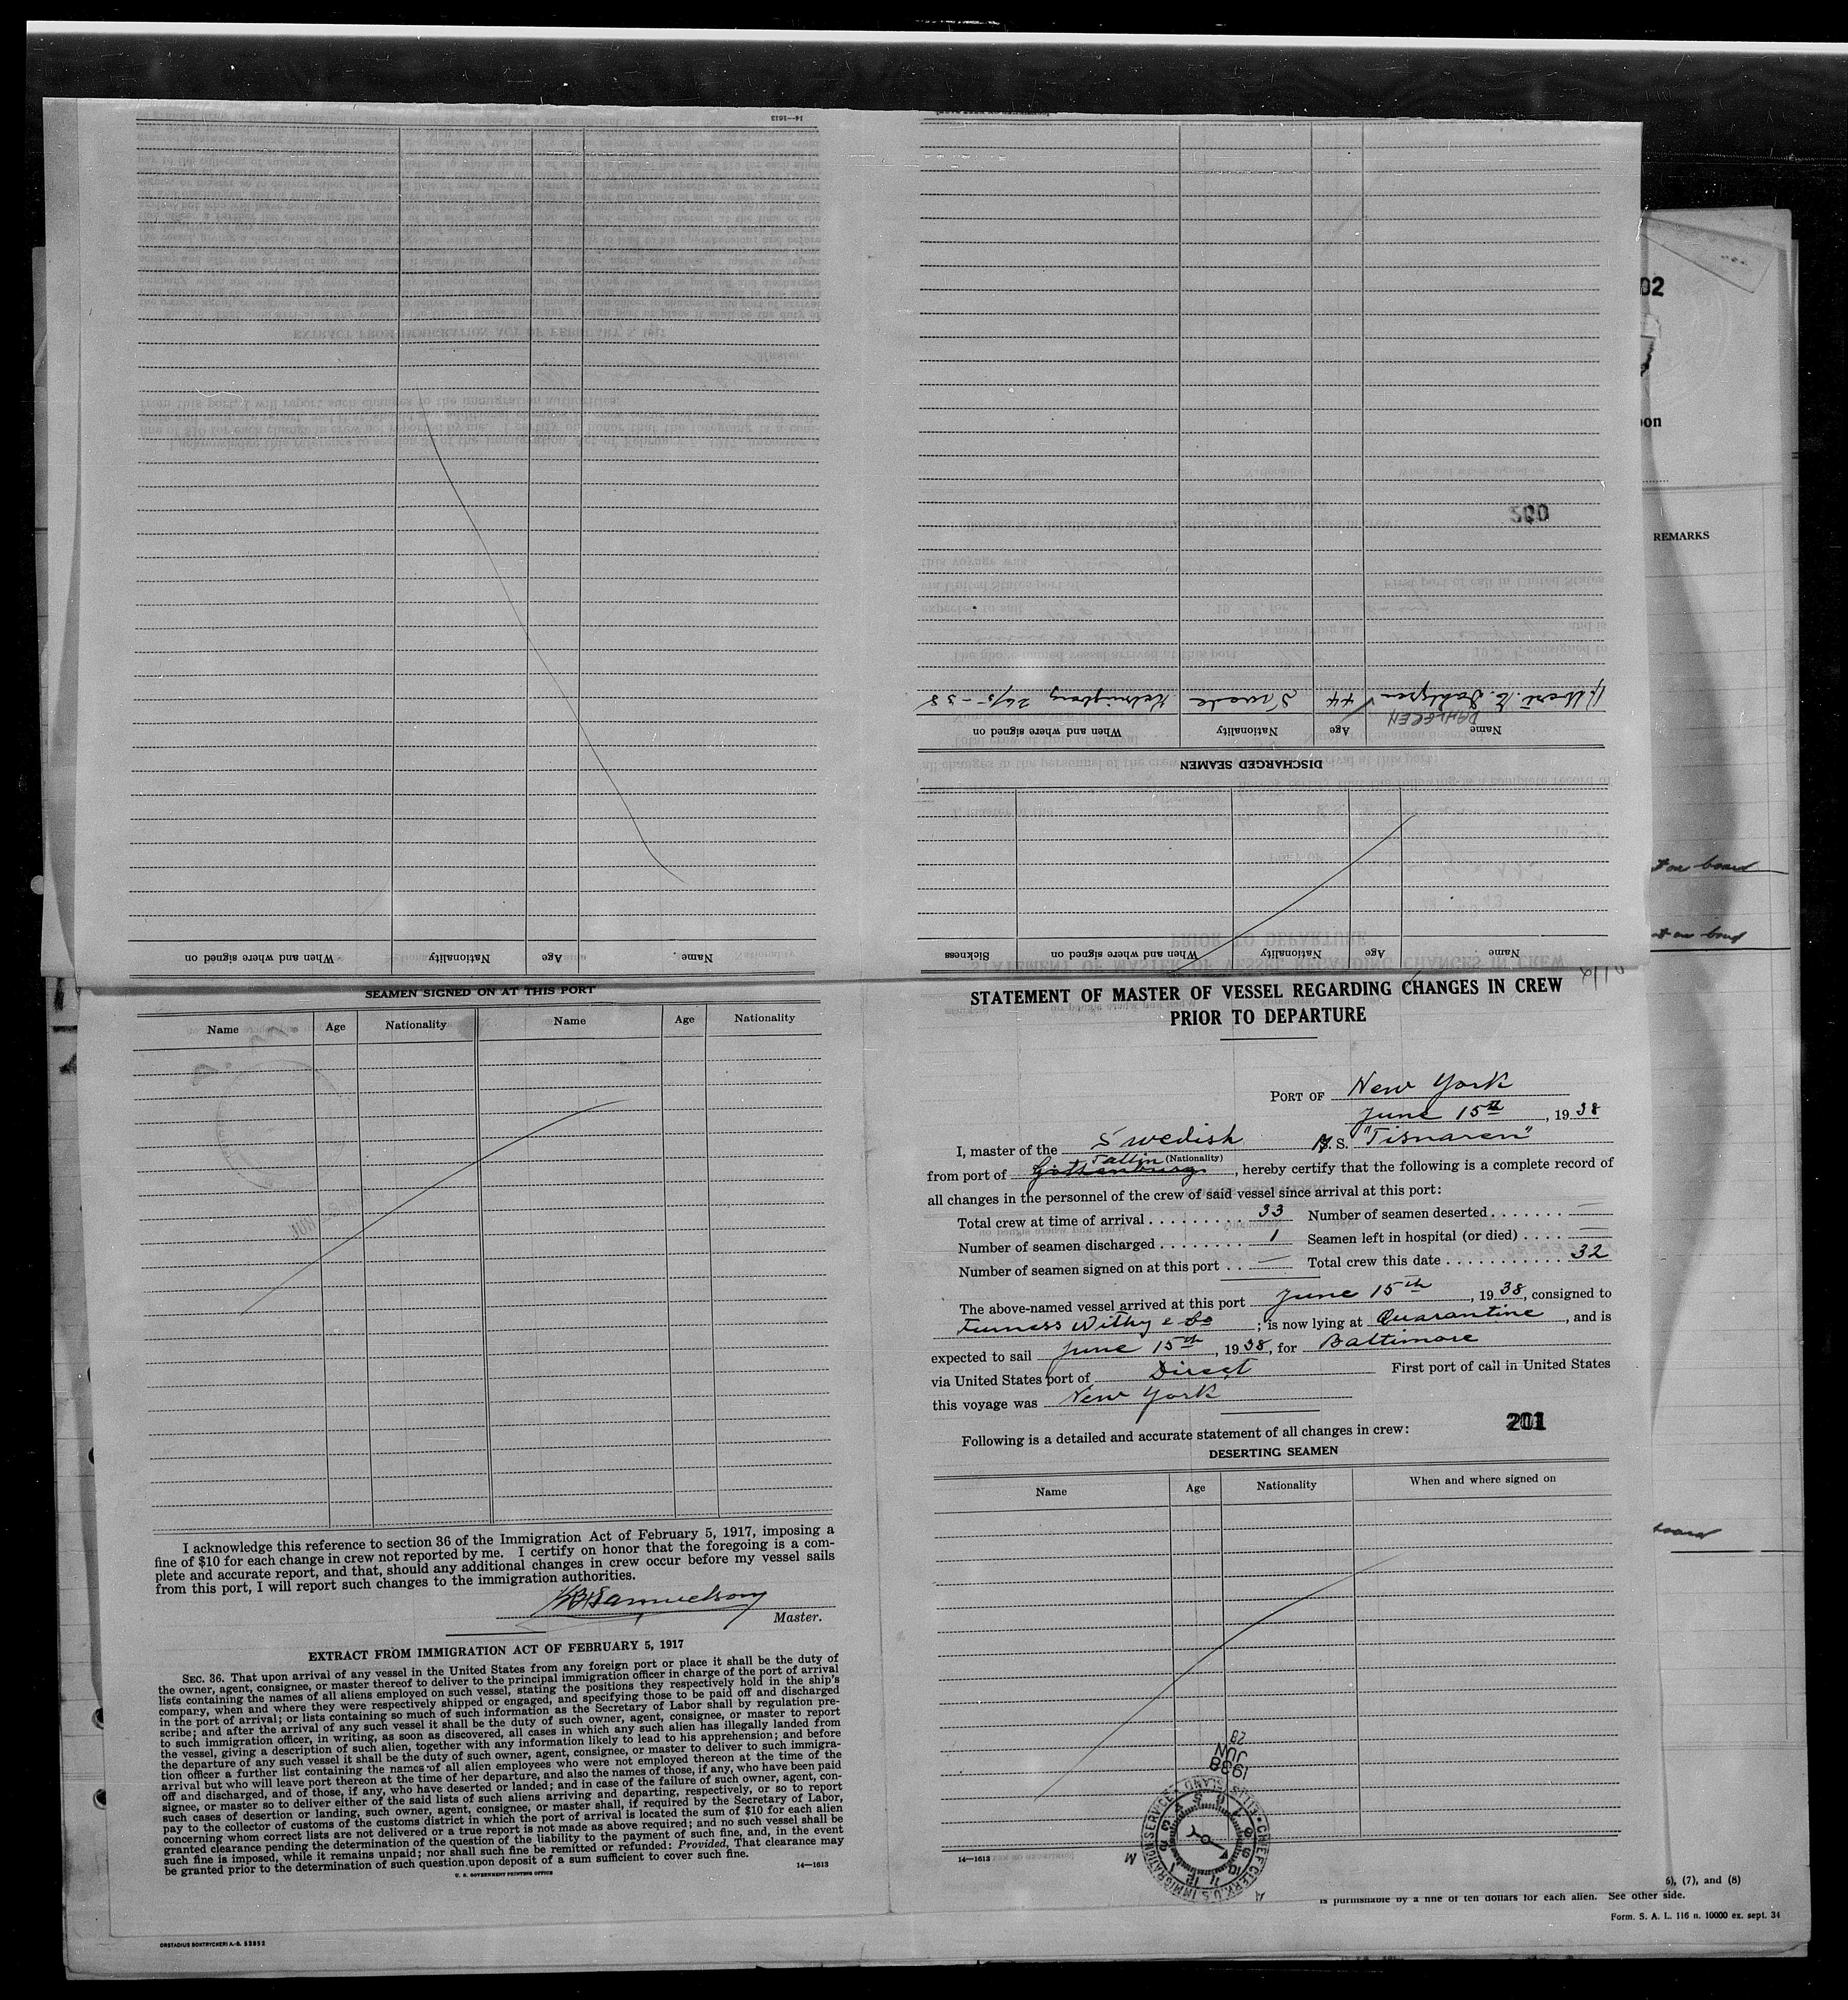 14—1613
When and where signed on
Nationality
Age
Name
500
Dahlgren ✓ 44 Swede Helsingborg 26/5 - 38
DAHLGREN
Name Age Nationality When and where signed on
DISCHARGED SEAMEN
Name Age Nationality When and where signed on Sickness
02
REMARKS
t on board
t on board
board
SEAMEN SIGNED ON AT THIS PORT
Name Age Nationality Name Age Nationality
I acknowledge this reference to section 36 of the Immigration Act of February 5, 1917, imposing a
fine of $10 for each change in crew not reported by me. I certify on honor that the foregoing is a com-
plete and accurate report, and that, should any additional changes in crew occur before my vessel sails
from this port, I will report such changes to the immigration authorities.
Samuelson
Master.
EXTRACT FROM IMMIGRATION ACT OF FEBRUARY 5, 1917
SEC. 36. That upon arrival of any vessel in the United States from any foreign port or place it shall be the duty of
the owner, agent, consignee, or master thereof to deliver to the principal immigration officer in charge of the port of arrival
lists containing the names of all aliens employed on such vessel, stating the positions they respectively hold in the ship's
company, when and where they were respectively shipped or engaged, and specifying those to be paid off and discharged
in the port of arrival; or lists containing so much of such information as the Secretary of Labor shall by regulation pre-
scribe; and after the arrival of any such vessel it shall be the duty of such owner, agent, consignee, or master to report
to such immigration officer, in writing, as soon as discovered, all cases in which any such alien has illegally landed from
the vessel, giving a description of such alien, together with any information likely to lead to his apprehension; and before
the departure of any such vessel it shall be the duty of such owner, agent, consignee, or master to deliver to such immigra-
tion officer a further list containing the names of all alien employees who were not employed thereon at the time of the
arrival but who will leave port thereon at the time of her departure, and also the names of those, if any, who have been paid
off and discharged, and of those, if any, who have deserted or landed; and in case of the failure of such owner, agent, con-
signee, or master so to deliver either of the said lists of such aliens arriving and departing, respectively, or so to report
such cases of desertion or landing, such owner, agent, consignee, or master shall, if required by the Secretary of Labor,
pay to the collector of customs of the customs district in which the port of arrival is located the sum of $10 for each alien
concerning whom correct lists are not delivered or a true report is not made as above required; and no such vessel shall be
granted clearance pending the determination of the question of the liability to the payment of such fine, and, in the event
such fine is imposed, while it remains unpaid; nor shall such fine be remitted or refunded: Provided, That clearance may
be granted prior to the determination of such question upon deposit of a sum sufficient to cover such fine.
U. S. GOVERNMENT PRINTING OFFICE
14—1613
ORSTADIUS BOKTRYCKERI A.-B. 52852
STATEMENT OF MASTER OF VESSEL REGARDING CHANGES IN CREW
PRIOR TO DEPARTURE
PORT OF New York
June 15th, 1938
I, master of the Swedish M. S. "Tisnaren"
(Nationality)
Tallin
from port of Gothenburg, hereby certify that the following is a complete record of
all changes in the personnel of the crew of said vessel since arrival at this port:
Total crew at time of arrival . . . . . . . . 33 Number of seamen deserted . . . . . . . —
Number of seamen discharged . . . . . . . . 1 Seamen left in hospital (or died) . . . . —
Number of seamen signed on at this port . . — Total crew this date . . . . . . . . . . . . 32
The above-named vessel arrived at this port June 15th, 1938, consigned to
Furness Withy & Co ; is now lying at Quarantine, and is
expected to sail June 15th, 1938, for Baltimore
via United States port of Direct First port of call in United States
this voyage was New York
Following is a detailed and accurate statement of all changes in crew:
201
DESERTING SEAMEN
Name Age Nationality When and where signed on
28
JUN
1938
CHIEF CLERK, U.S. IMMIGRATION SERVICE ELLIS ISLAND
14—1613
6), (7), and (8)
is punishable by a fine of ten dollars for each alien. See other side.
Form. S. A. L. 116 n. 10000 ex. sept. 34